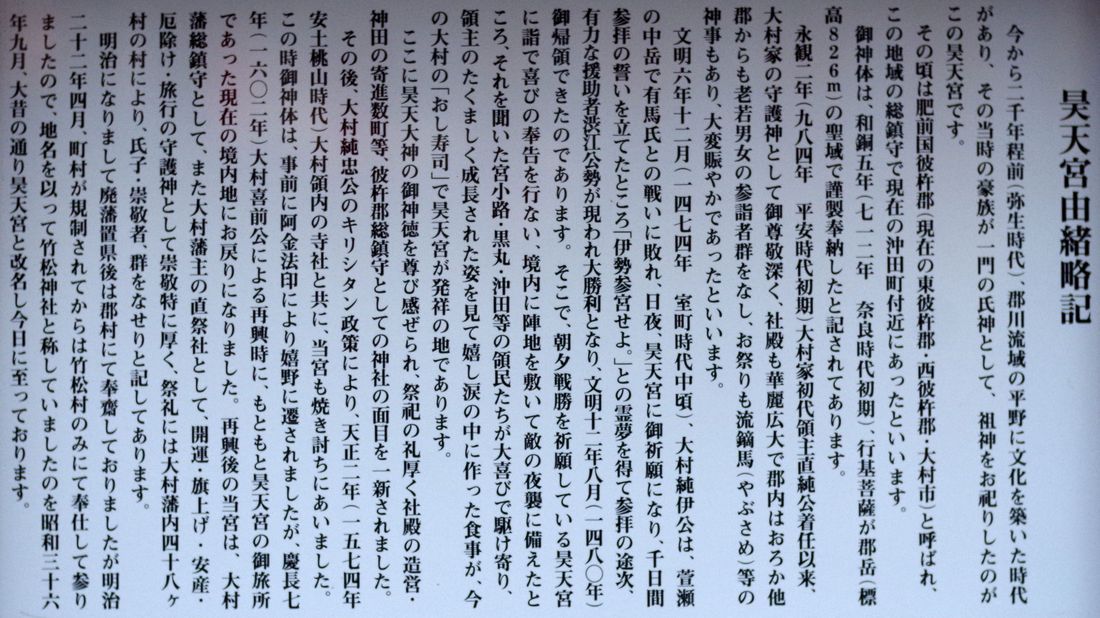 昊天宮由緒略記
今から二千年程前(弥生時代)、郡川流域の平野に文化を築いた時代
があり、その当時の豪族が一門の氏神として、祖神をお祀りしたのが
この昊天宮です。
その頃は肥前国彼杵郡(現在の東彼杵郡・西彼杵郡・大村市)と呼ばれ、
この地域の総鎮守で現在の沖田町付近にあったといいます。
御神体は、和銅五年(七一二年 奈良時代初期)、行基菩薩が郡岳(標
高826m)の聖域で謹製奉納したと記されてあります。
永観二年(九八四年 平安時代初期)大村家初代領主直純公着任以来、
大村家の守護神として御尊敬深く、社殿も華麗広大で郡内はおろか他
郡からも老若男女の参詣者群をなし、お祭りも流鏑馬(やぶさめ)等の
神事もあり、大変賑やかであったといいます。
文明六年十二月(一四七四年 室町時代中頃)、大村純伊公は、萱瀬
の中岳で有馬氏との戦いに敗れ、日夜、昊天宮に御祈願になり、千日間
参拝の誓いを立てたところ「伊勢参宮せよ。」との霊夢を得て参拝の途次、
有力な援助者渋江公勢が現われ大勝利となり、文明十二年八月(一四八〇年)
御帰領できたのであります。そこで、朝夕戦勝を祈願している昊天宮
に詣で喜びの奉告を行ない、境内に陣地を敷いて敵の夜襲に備えたと
ころ、それを聞いた宮小路・黒丸・沖田等の領民たちが大喜びで駆け寄り、
領主のたくましく成長された姿を見て嬉し涙の中に作った食事が、今
の大村の「おし寿司」で昊天宮が発祥の地であります。
ここに昊天大神の御神徳を尊び感ぜられ、祭祀の礼厚く社殿の造営・
神田の寄進数町等、彼杵郡総鎮守としての神社の面目を一新されました。
その後、大村純忠公のキリシタン政策により、天正二年(一五七四年
安土桃山時代)大村領内の寺社と共に、当宮も焼き討ちにあいました。
この時御神体は、事前に阿金法印により嬉野に遷されましたが、慶長七
年(一六〇二年)大村喜前公による再興時に、もともと昊天宮の御旅所
であった現在の境内地にお戻りになりました。再興後の当宮は、大村
藩総鎮守として、また大村藩主の直祭社として、開運・旗上げ・安産・
厄除け・旅行の守護神として崇敬特に厚く、祭礼には大村藩内四十八ヶ
村の村により、氏子・崇敬者、群をなせりと記してあります。
明治になりまして廃藩置県後は郡村にて奉齋しておりましたが明治
二十二年四月、町村が規制されてからは竹松村のみにて奉仕して参り
ましたので、地名を以って竹松神社と称していましたのを昭和三十六
年九月、大昔の通り昊天宮と改名し今日に至っております。